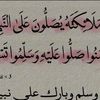 وملائكته يصلون على النبي
آمنوا صلوا عليه وسلموا تسليما
وسلم وبارك على نبي